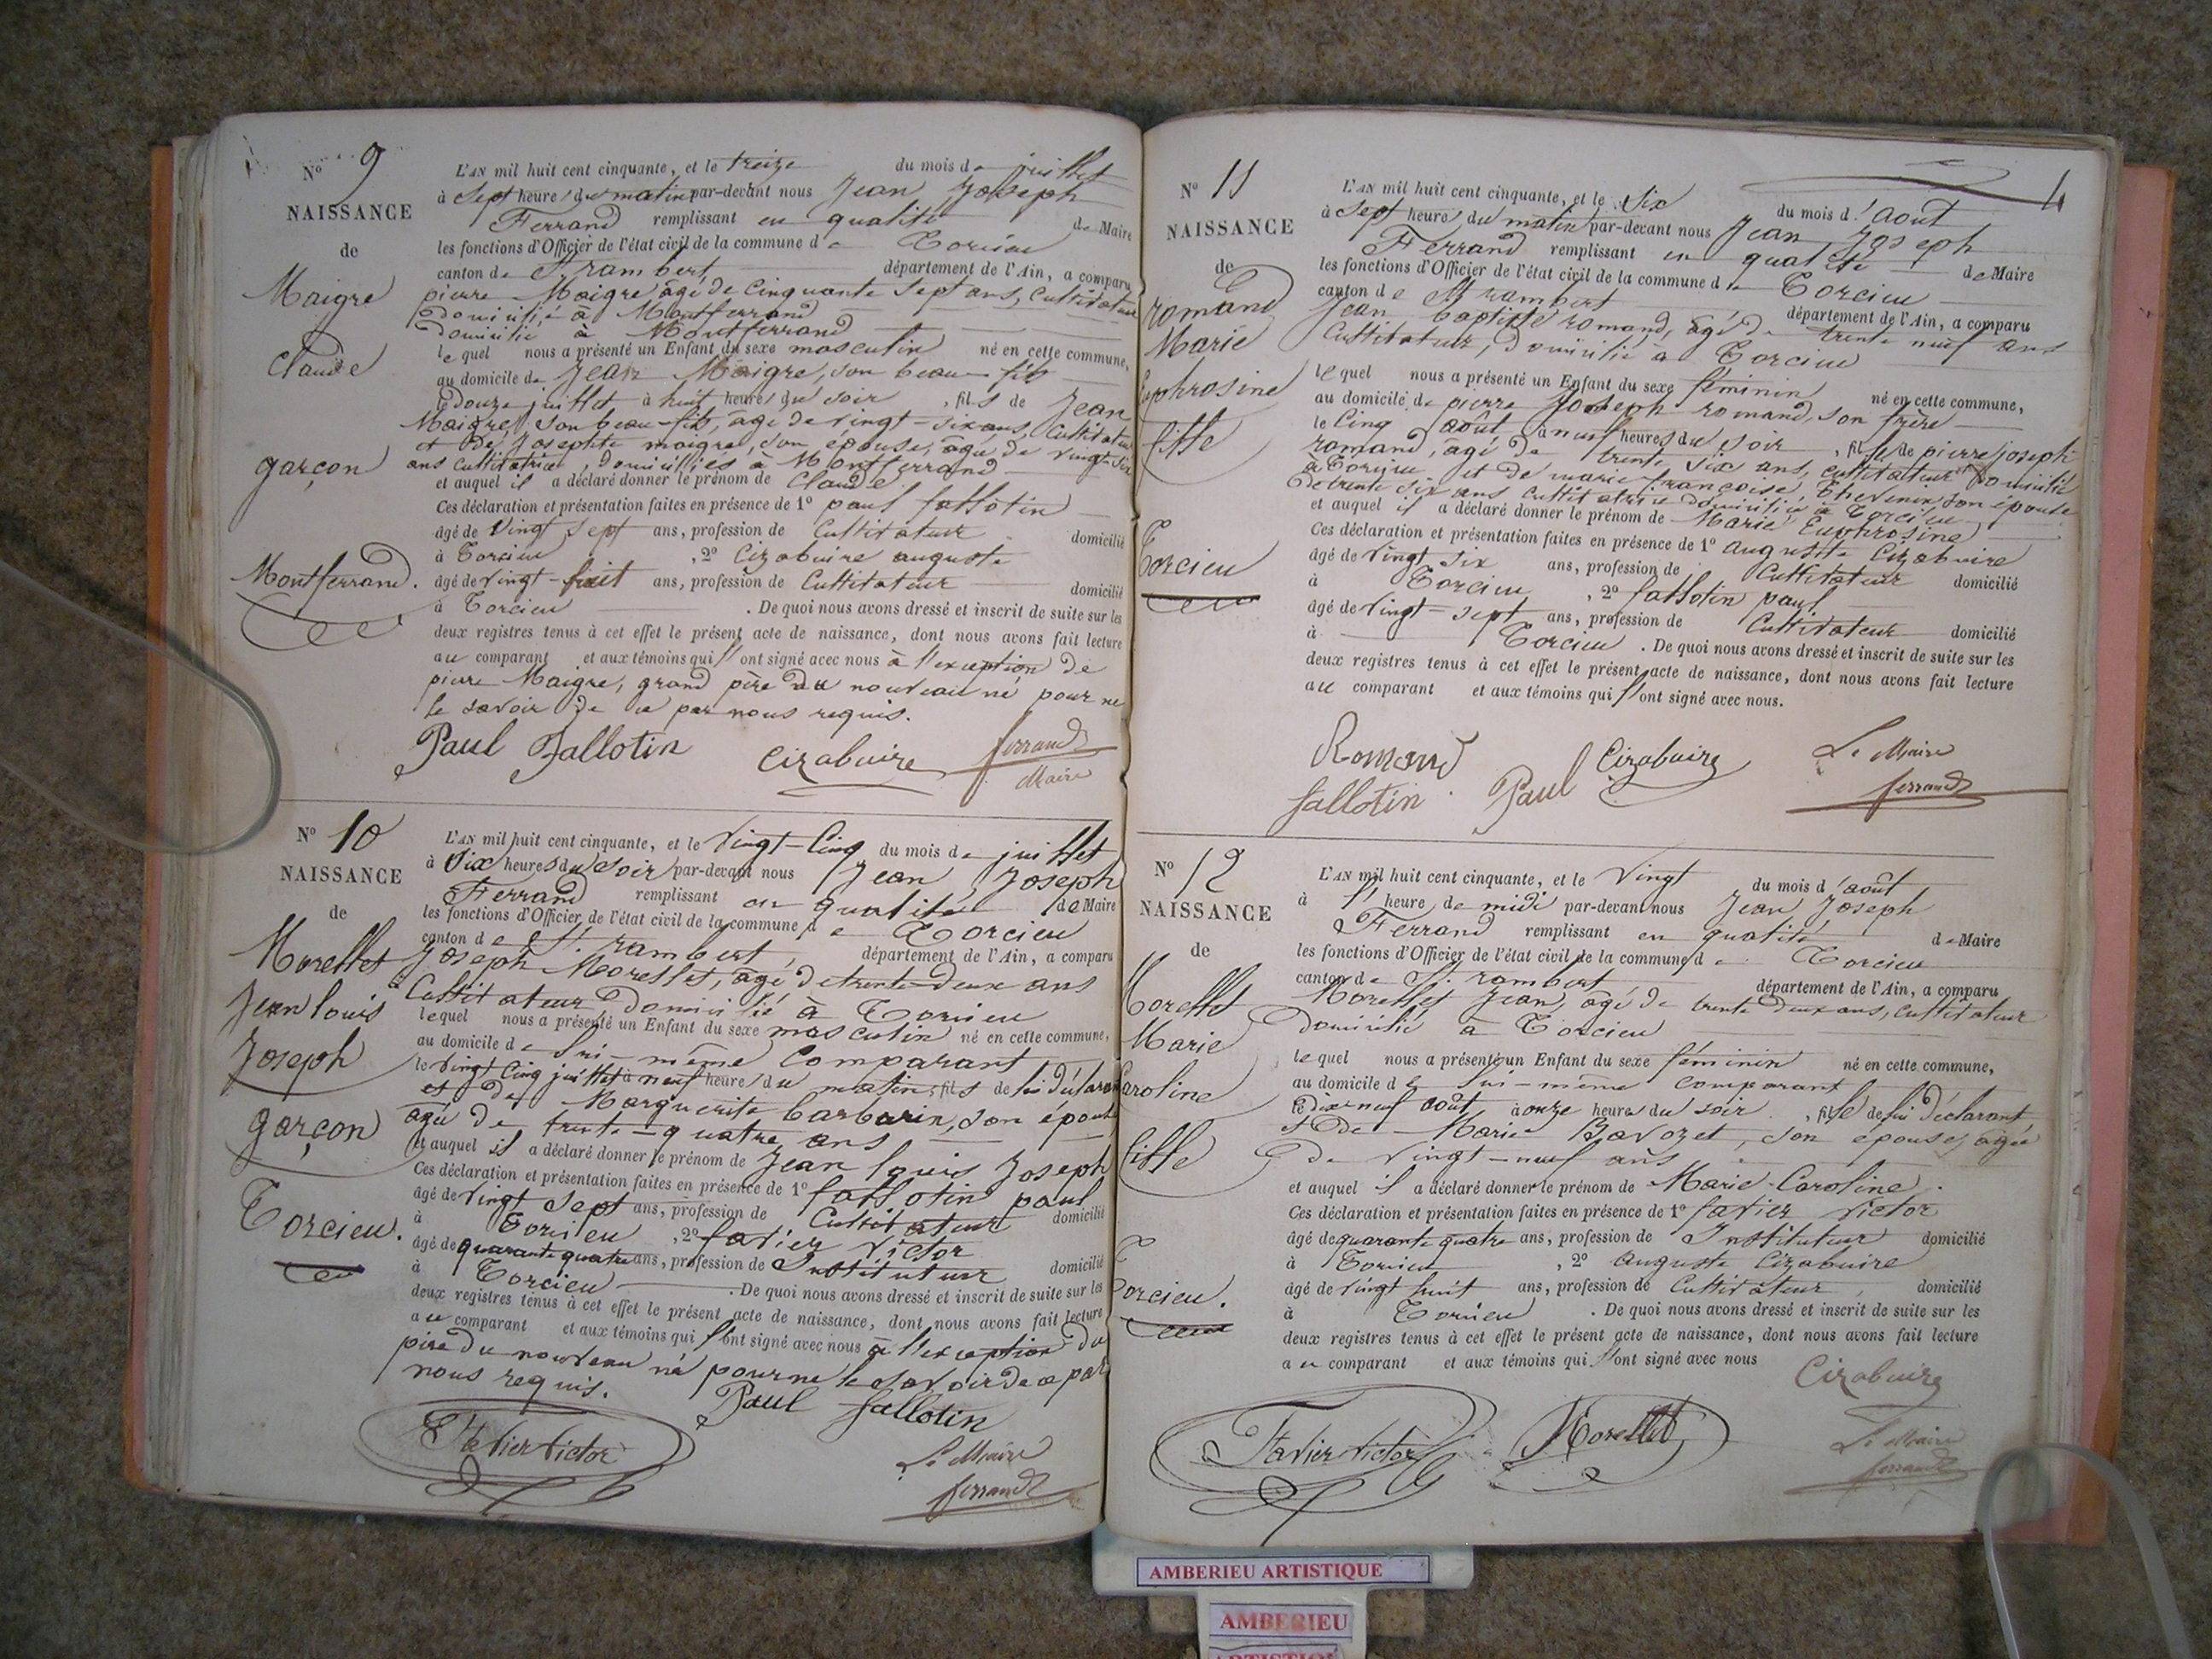 N° 9
NAISSANCE
de
Maigre
Claude
garçon
Montferrand.
L'AN mil huit cent cinquante, et le treize du mois de juillet
à Sept heures du matin par-devant nous Jean Joseph
Ferrand remplissant en qualité de Maire
les fonctions d'Officier de l'état civil de la commune de Torcieu
canton de St rambert département de l'Ain, a comparu
pierre Maigre âgé de Cinquante Sept ans, Cultivateur
domicilié à Montferrand
domicilié à Montferrand
lequel nous a présenté un Enfant du sexe masculin né en cette commune,
au domicile de Jean Maigre, son beau-fils
le douze juillet à huit heures du soir, fils de Jean
Maigre, son beau-fils, âgé de vingt-six ans, Cultivateur
et de Josephte maigre, son épouse, âgée de vingt-six
ans cultivatrice, domiciliés à Montferrand
et auquel il a déclaré donner le prénom de Claude
Ces déclaration et présentation faites en présence de 1° paul fallotin
âgé de Vingt Sept ans, profession de Cultivateur domicilié
à Torcieu, 2° Cizabuire auguste
âgé de vingt-huit ans, profession de Cultivateur domicilié
à Torcieu. De quoi nous avons dressé et inscrit de suite sur les
deux registres tenus à cet effet le présent acte de naissance, dont nous avons fait lecture
au comparant et aux témoins qui l'ont signé avec nous à l'exception de
pierre Maigre, grand père du nouveau né pour ne
le savoir de ce par nous requis.
Paul Fallotin Cizabuire ferrand
Maire
N° 10
NAISSANCE
de
Morellet
Jean louis
Joseph
garçon
Torcieu.
L'AN mil huit cent cinquante, et le Vingt-Cinq du mois de juillet
à Six heures du Soir par-devant nous Jean Joseph
Ferrand remplissant en qualité de Maire
les fonctions d'Officier de l'état civil de la commune de Torcieu
canton de St. rambert, département de l'Ain, a comparu
Joseph Morellet, âgé de trente deux ans
Cultivateur domicilié à Torcieu
lequel nous a présenté un Enfant du sexe masculin né en cette commune,
au domicile de lui-même Comparant
le vingt Cinq juillet à neuf heures du matin, fils de lui déclarant
et de Marguerite barbarin, son épouse
âgée de trente-quatre ans
et auquel il a déclaré donner le prénom de Jean louis Joseph
Ces déclaration et présentation faites en présence de 1° fallotin paul
âgé de Vingt Sept ans, profession de Cultivateur domicilié
à Torcieu, 2° favier Victor
âgé de quarante quatre ans, profession de Instituteur domicilié
à Torcieu. De quoi nous avons dressé et inscrit de suite sur les
deux registres tenus à cet effet le présent acte de naissance, dont nous avons fait lecture
au comparant et aux témoins qui l'ont signé avec nous à l'exception du
père du nouveau né pour ne le savoir de ce par
nous requis.
Paul fallotin
Favier Victor
Le Maire
ferrand
4
N° 11
NAISSANCE
de
romand
Marie
Euphrosine
fille
Torcieu
L'AN mil huit cent cinquante, et le Six du mois d'Aout
à Sept heures du matin par-devant nous Jean Joseph
Ferrand remplissant en qualité de Maire
les fonctions d'Officier de l'état civil de la commune de Torcieu
canton de St rambert département de l'Ain, a comparu
Jean baptiste romand, âgé de trente neuf ans
Cultivateur, domicilié à Torcieu
lequel nous a présenté un Enfant du sexe féminin né en cette commune,
au domicile de pierre Joseph romand, son frère
le Cinq aout à neuf heures du soir, fille de pierre joseph
romand, âgé de trente six ans, cultivateur domicilié
à Torcieu et de marie françoise Thevenin son épouse
de trente six ans Cultivatrice domiciliée à Torcieu
et auquel il a déclaré donner le prénom de Marie Euphrosine
Ces déclaration et présentation faites en présence de 1° auguste Cizabuire
âgé de vingt six ans, profession de Cultivateur domicilié
à Torcieu, 2° fallotin paul
âgé de vingt-sept ans, profession de Cultivateur domicilié
à Torcieu. De quoi nous avons dressé et inscrit de suite sur les
deux registres tenus à cet effet le présent acte de naissance, dont nous avons fait lecture
au comparant et aux témoins qui l'ont signé avec nous.
Romand Cizabuire Le Maire
fallotin Paul ferrand
N° 12
NAISSANCE
de
Morellet
Marie
Caroline
fille
Torcieu.
L'AN mil huit cent cinquante, et le Vingt du mois d'août
à l'heure de midi par-devant nous Jean Joseph
Ferrand remplissant en qualité de Maire
les fonctions d'Officier de l'état civil de la commune de Torcieu
canton de St. rambert département de l'Ain, a comparu
Morellet Jean, âgé de trente deux ans, cultivateur
domicilié à Torcieu
lequel nous a présenté un Enfant du sexe féminin né en cette commune,
au domicile de lui-même comparant
le dix neuf août à onze heures du soir, fille de lui déclarant,
et de Marie Bavozet, son épouse, agée
de vingt-neuf ans
et auquel il a déclaré donner le prénom de Marie-Caroline.
Ces déclaration et présentation faites en présence de 1° favier Victor
âgé de quarante quatre ans, profession de Instituteur domicilié
à Torcieu, 2° auguste Cizabuire
âgé de vingt huit ans, profession de Cultivateur, domicilié
à Torcieu. De quoi nous avons dressé et inscrit de suite sur les
deux registres tenus à cet effet le présent acte de naissance, dont nous avons fait lecture
au comparant et aux témoins qui l'ont signé avec nous
Cizabuire
Favier Victor Morellet Le Maire
ferrand
AMBERIEU ARTISTIQUE
AMBERIEU
ARTISTIQUE